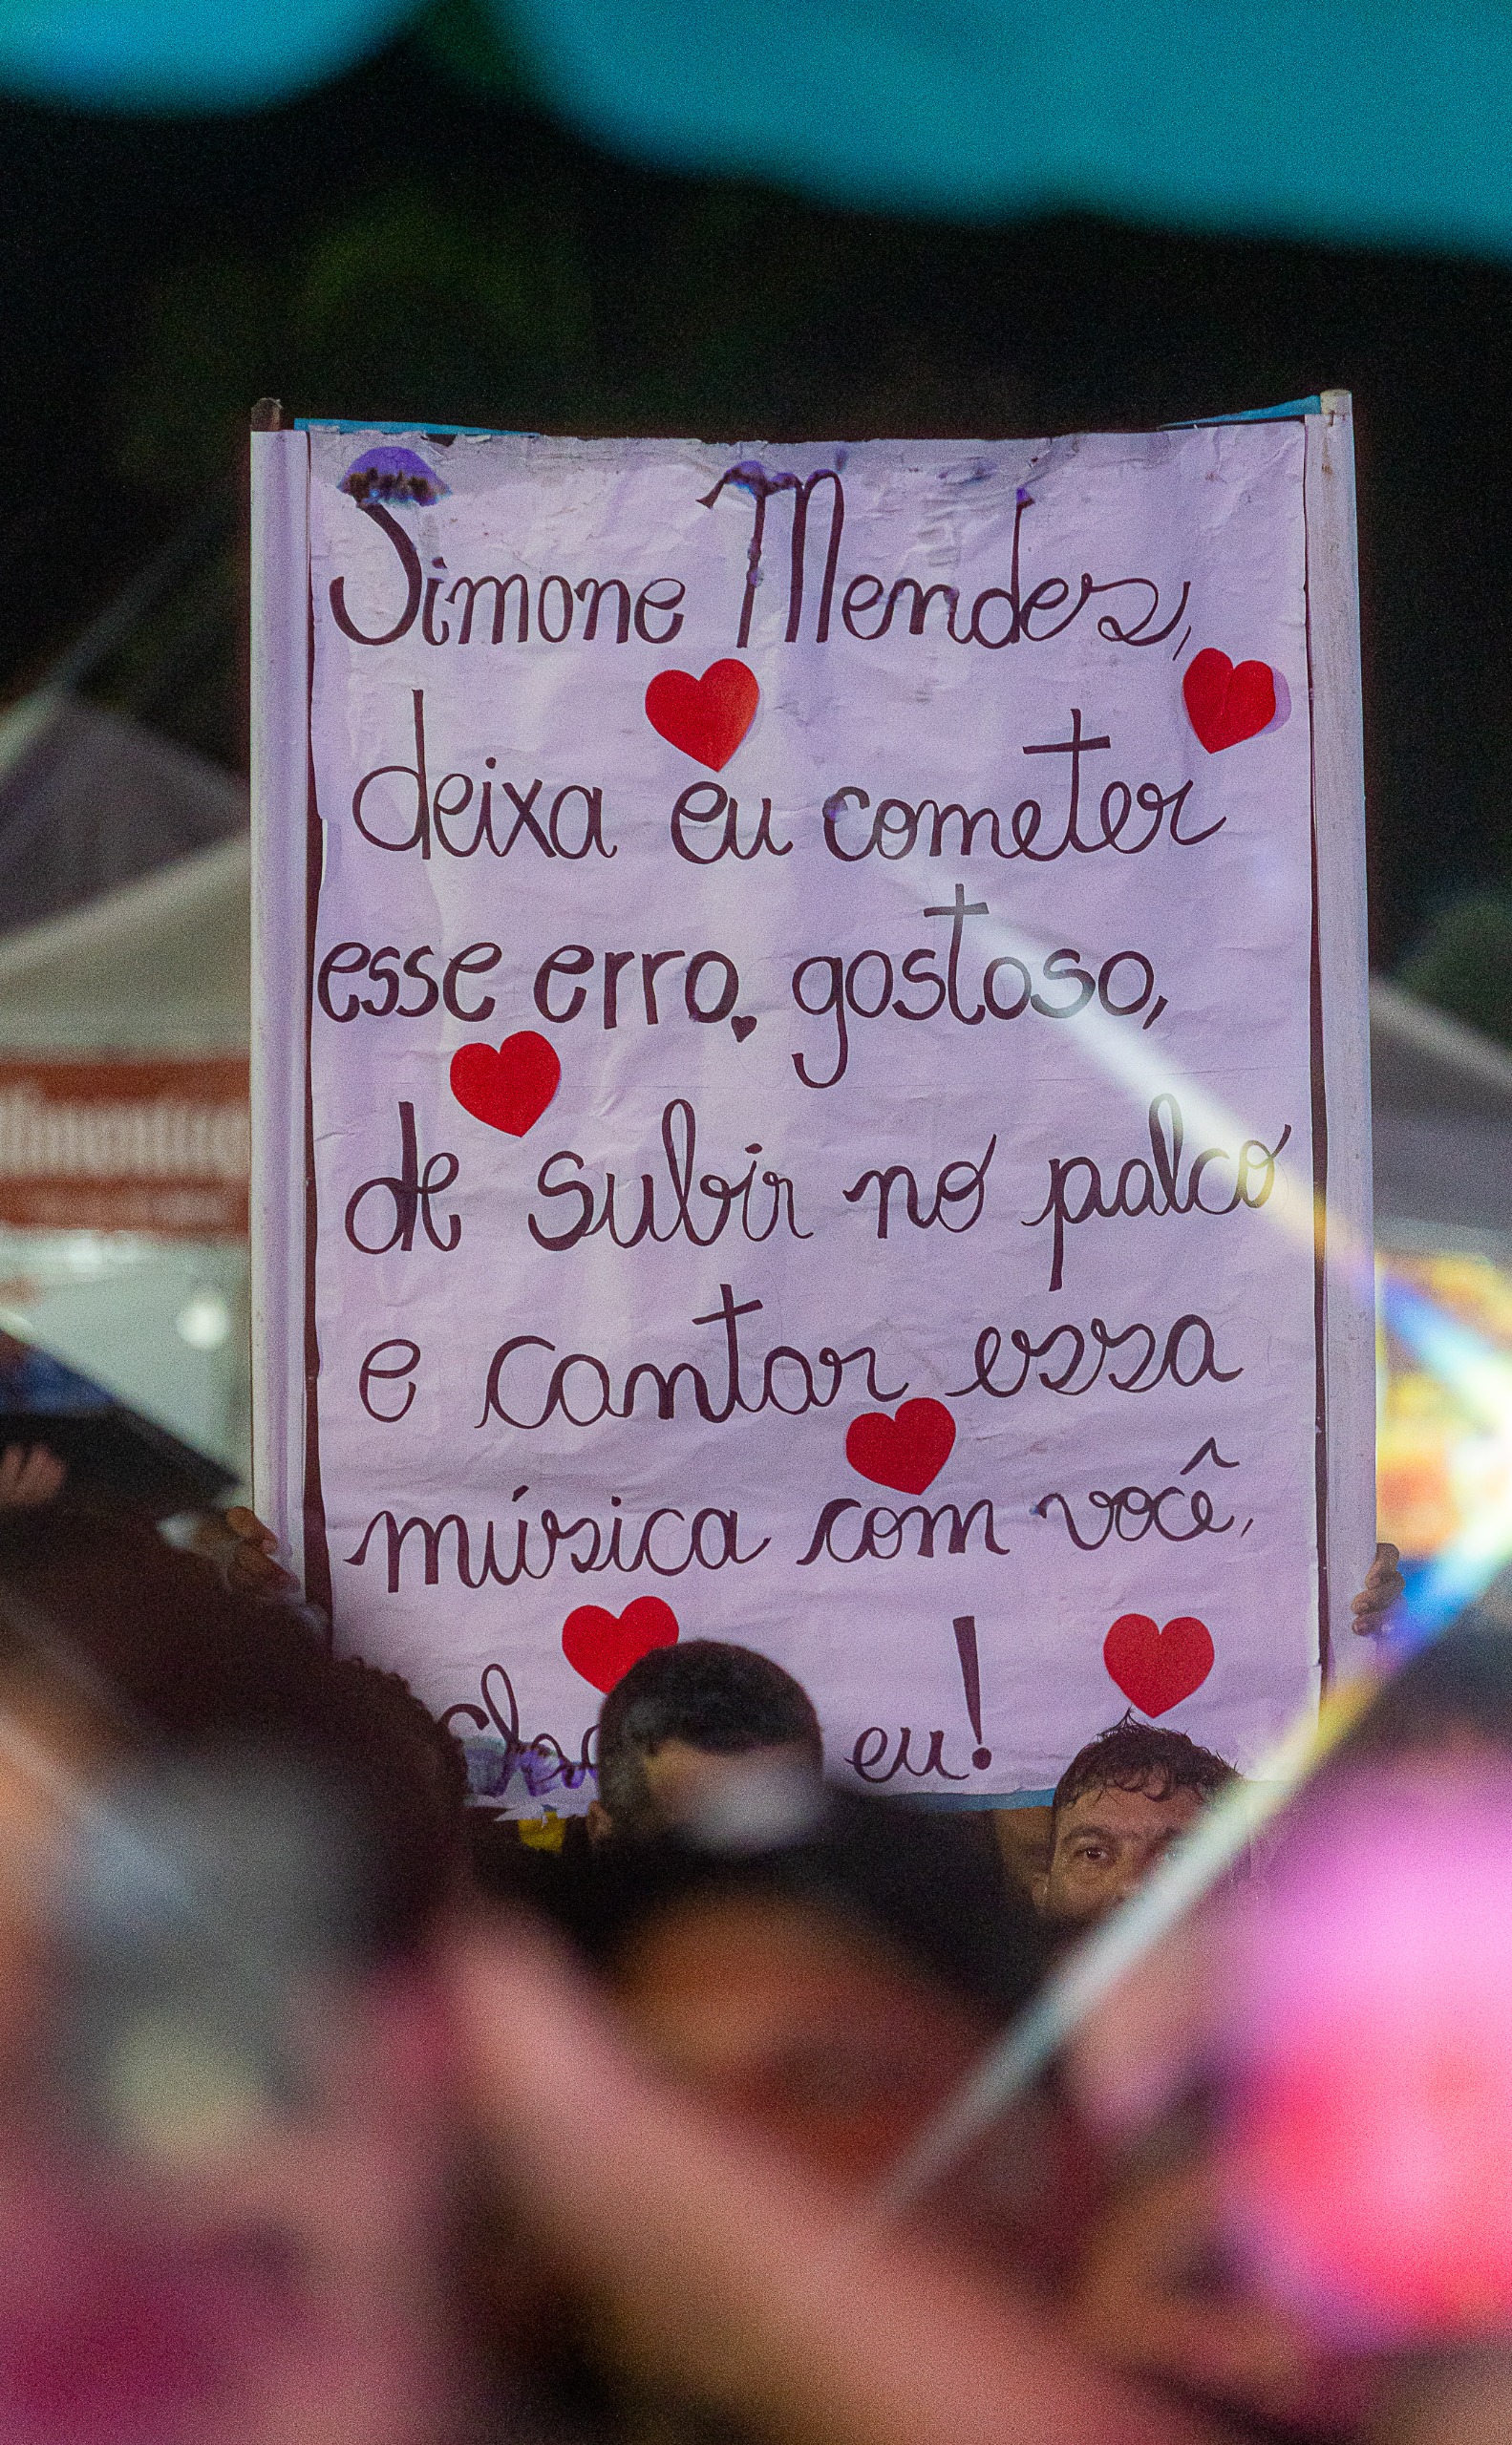 Simone Mendes,
deixa eu cometer
esse erro gostoso,
de subir no palco
e cantar essa
música com você,
eu!